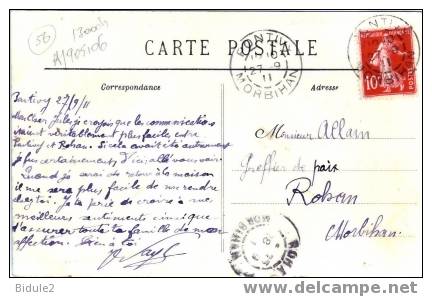 56
CARTE POSTALE
PONTIVY
27-9
11
MORBIHAN
Correspondance
Adresse
10
Pontivy 27/9/11
Mon Cher Jules je croyais que les communications
étaient véritablement plus facile entre
Pontivy et Rohan. Si cela avait été autrement
je
certainement allé vous voir.
Quand je serai de retour à la maison
il me sera plus facile de me rendre
chez toi. Je te prie de croire à mes
meilleurs sentiments
d'assurer toute ta famille de mon
affection. Bien à toi
Monsieur Allain
Greffier de paix
Rohan
Morbihan
ROHAN
MORBIHAN
Bidule2
delcampe.net